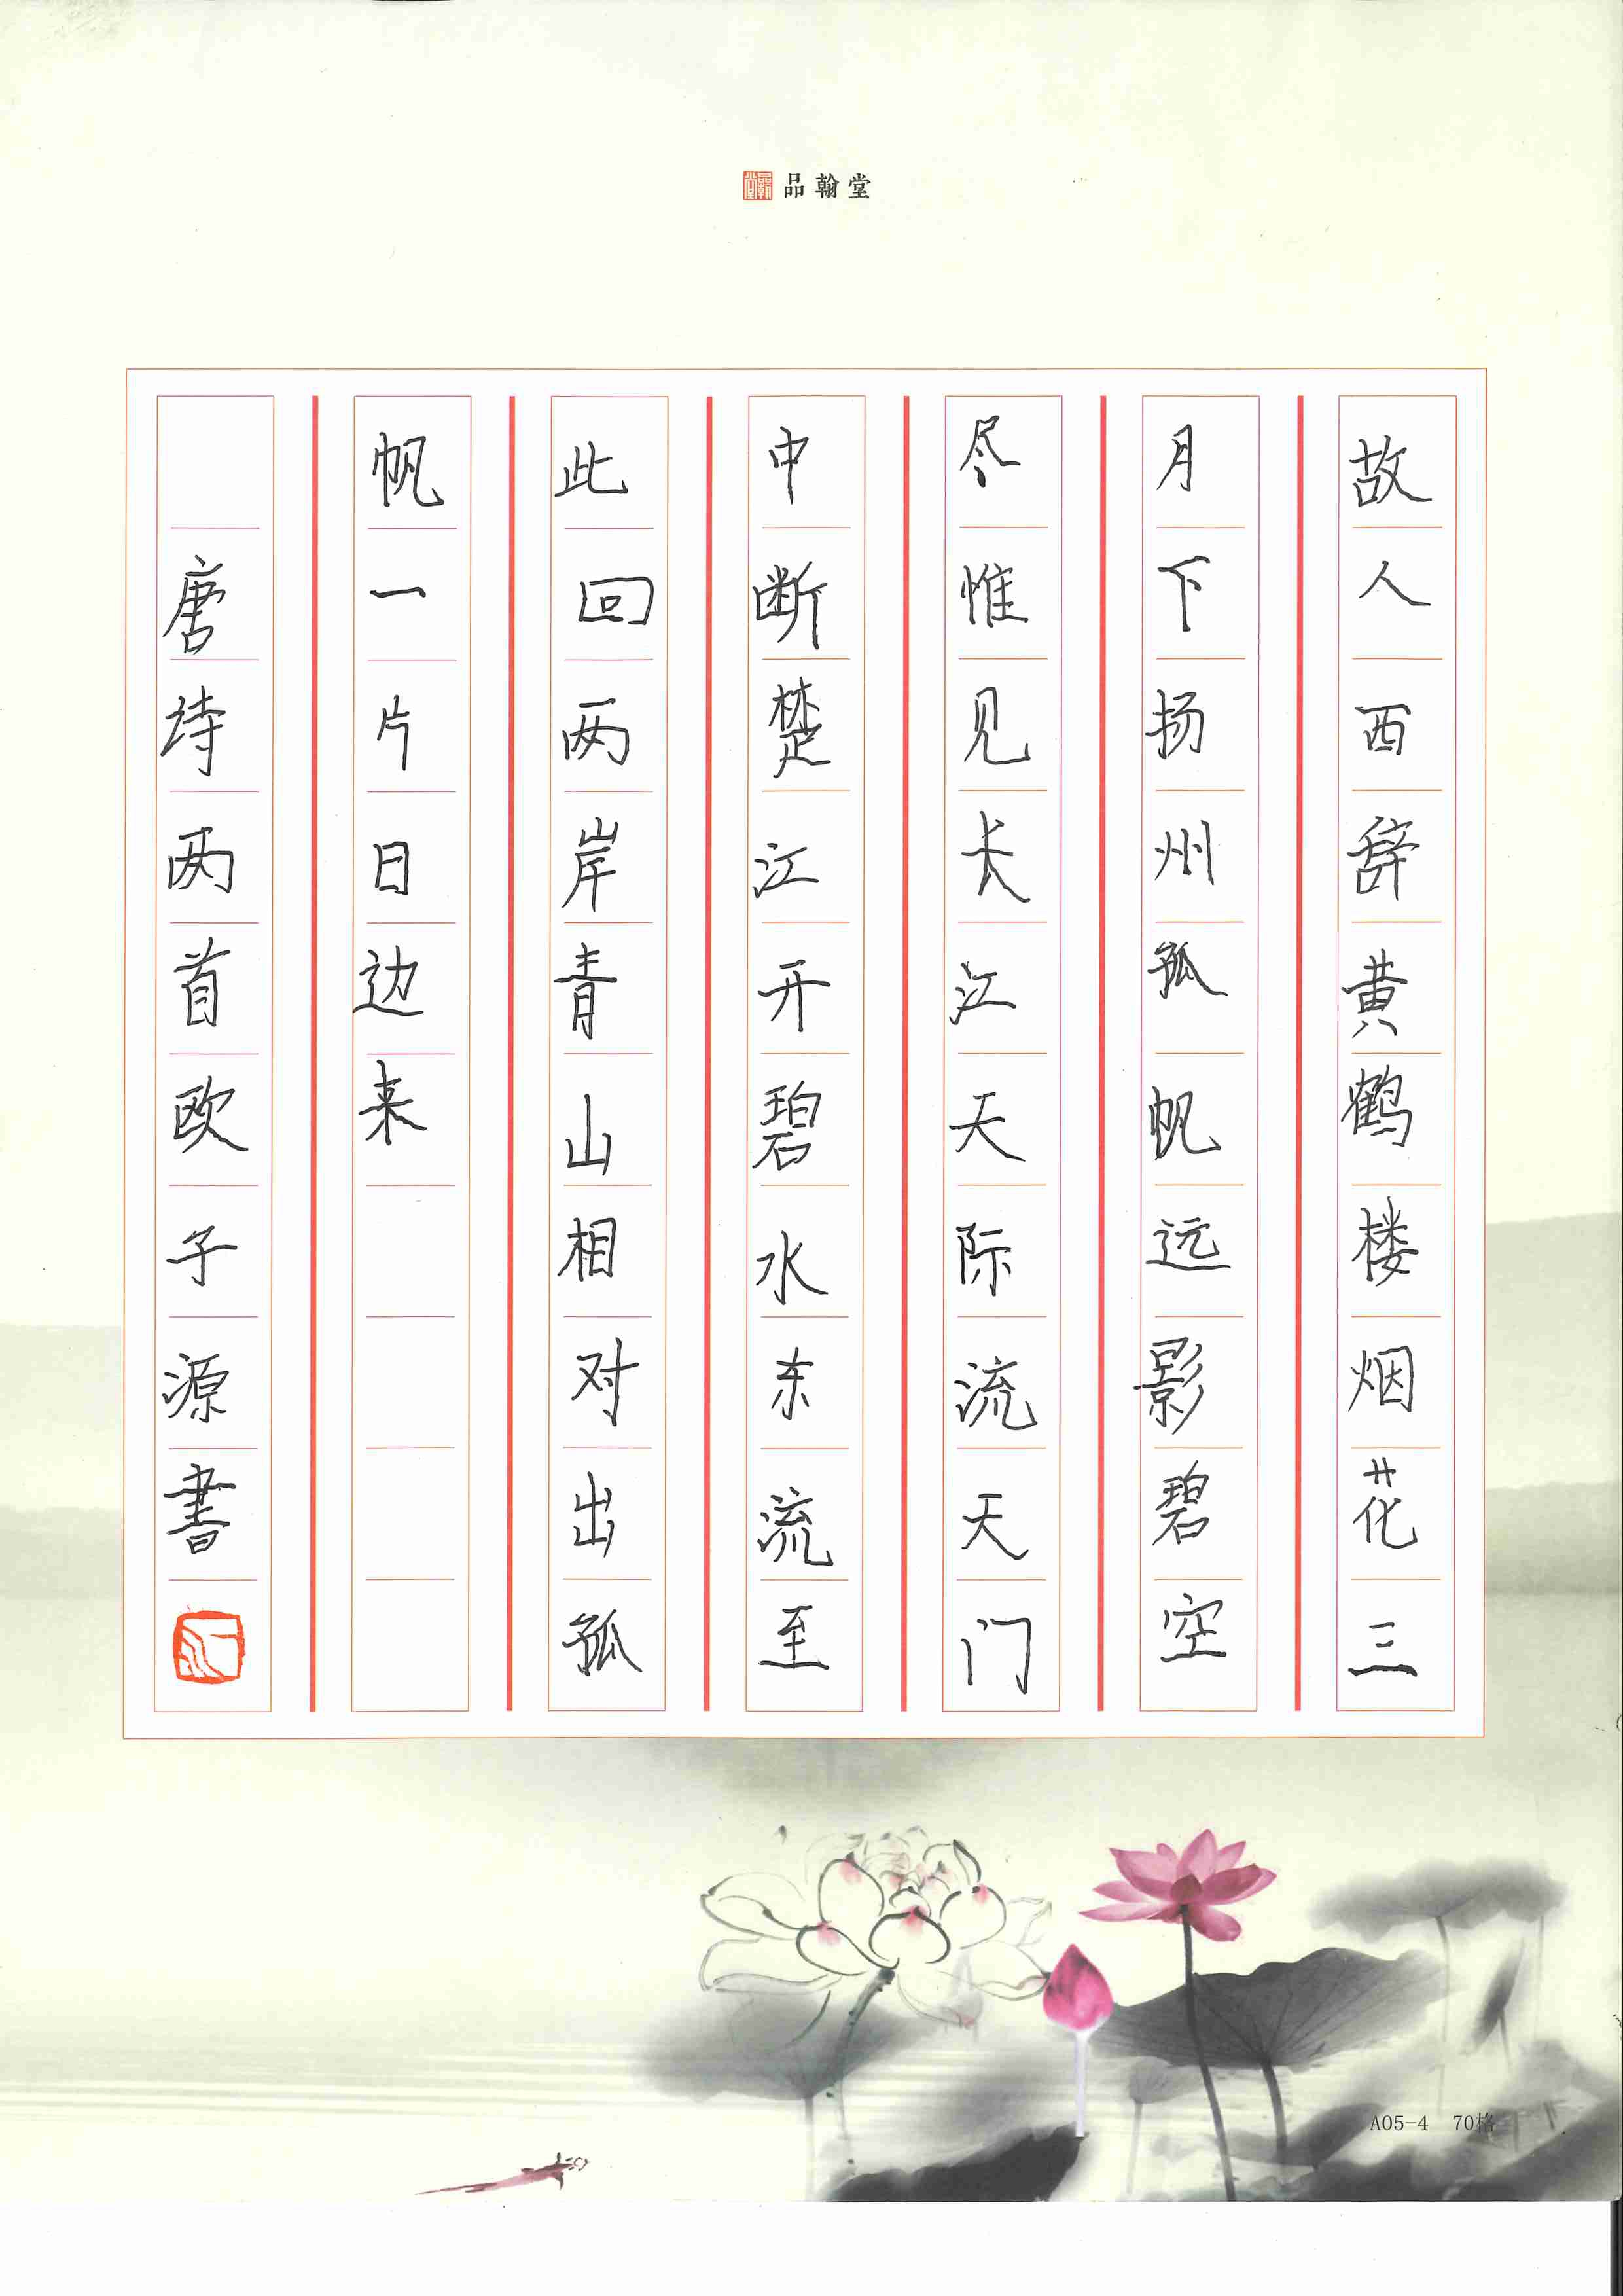 品翰堂
故人西辞黄鹤楼烟花三
月下扬州孤帆远影碧空
尽惟见长江天际流天门
中断楚江开碧水东流至
此回两岸青山相对出孤
帆一片日边来
唐诗两首欧子源書
A05-4 70格